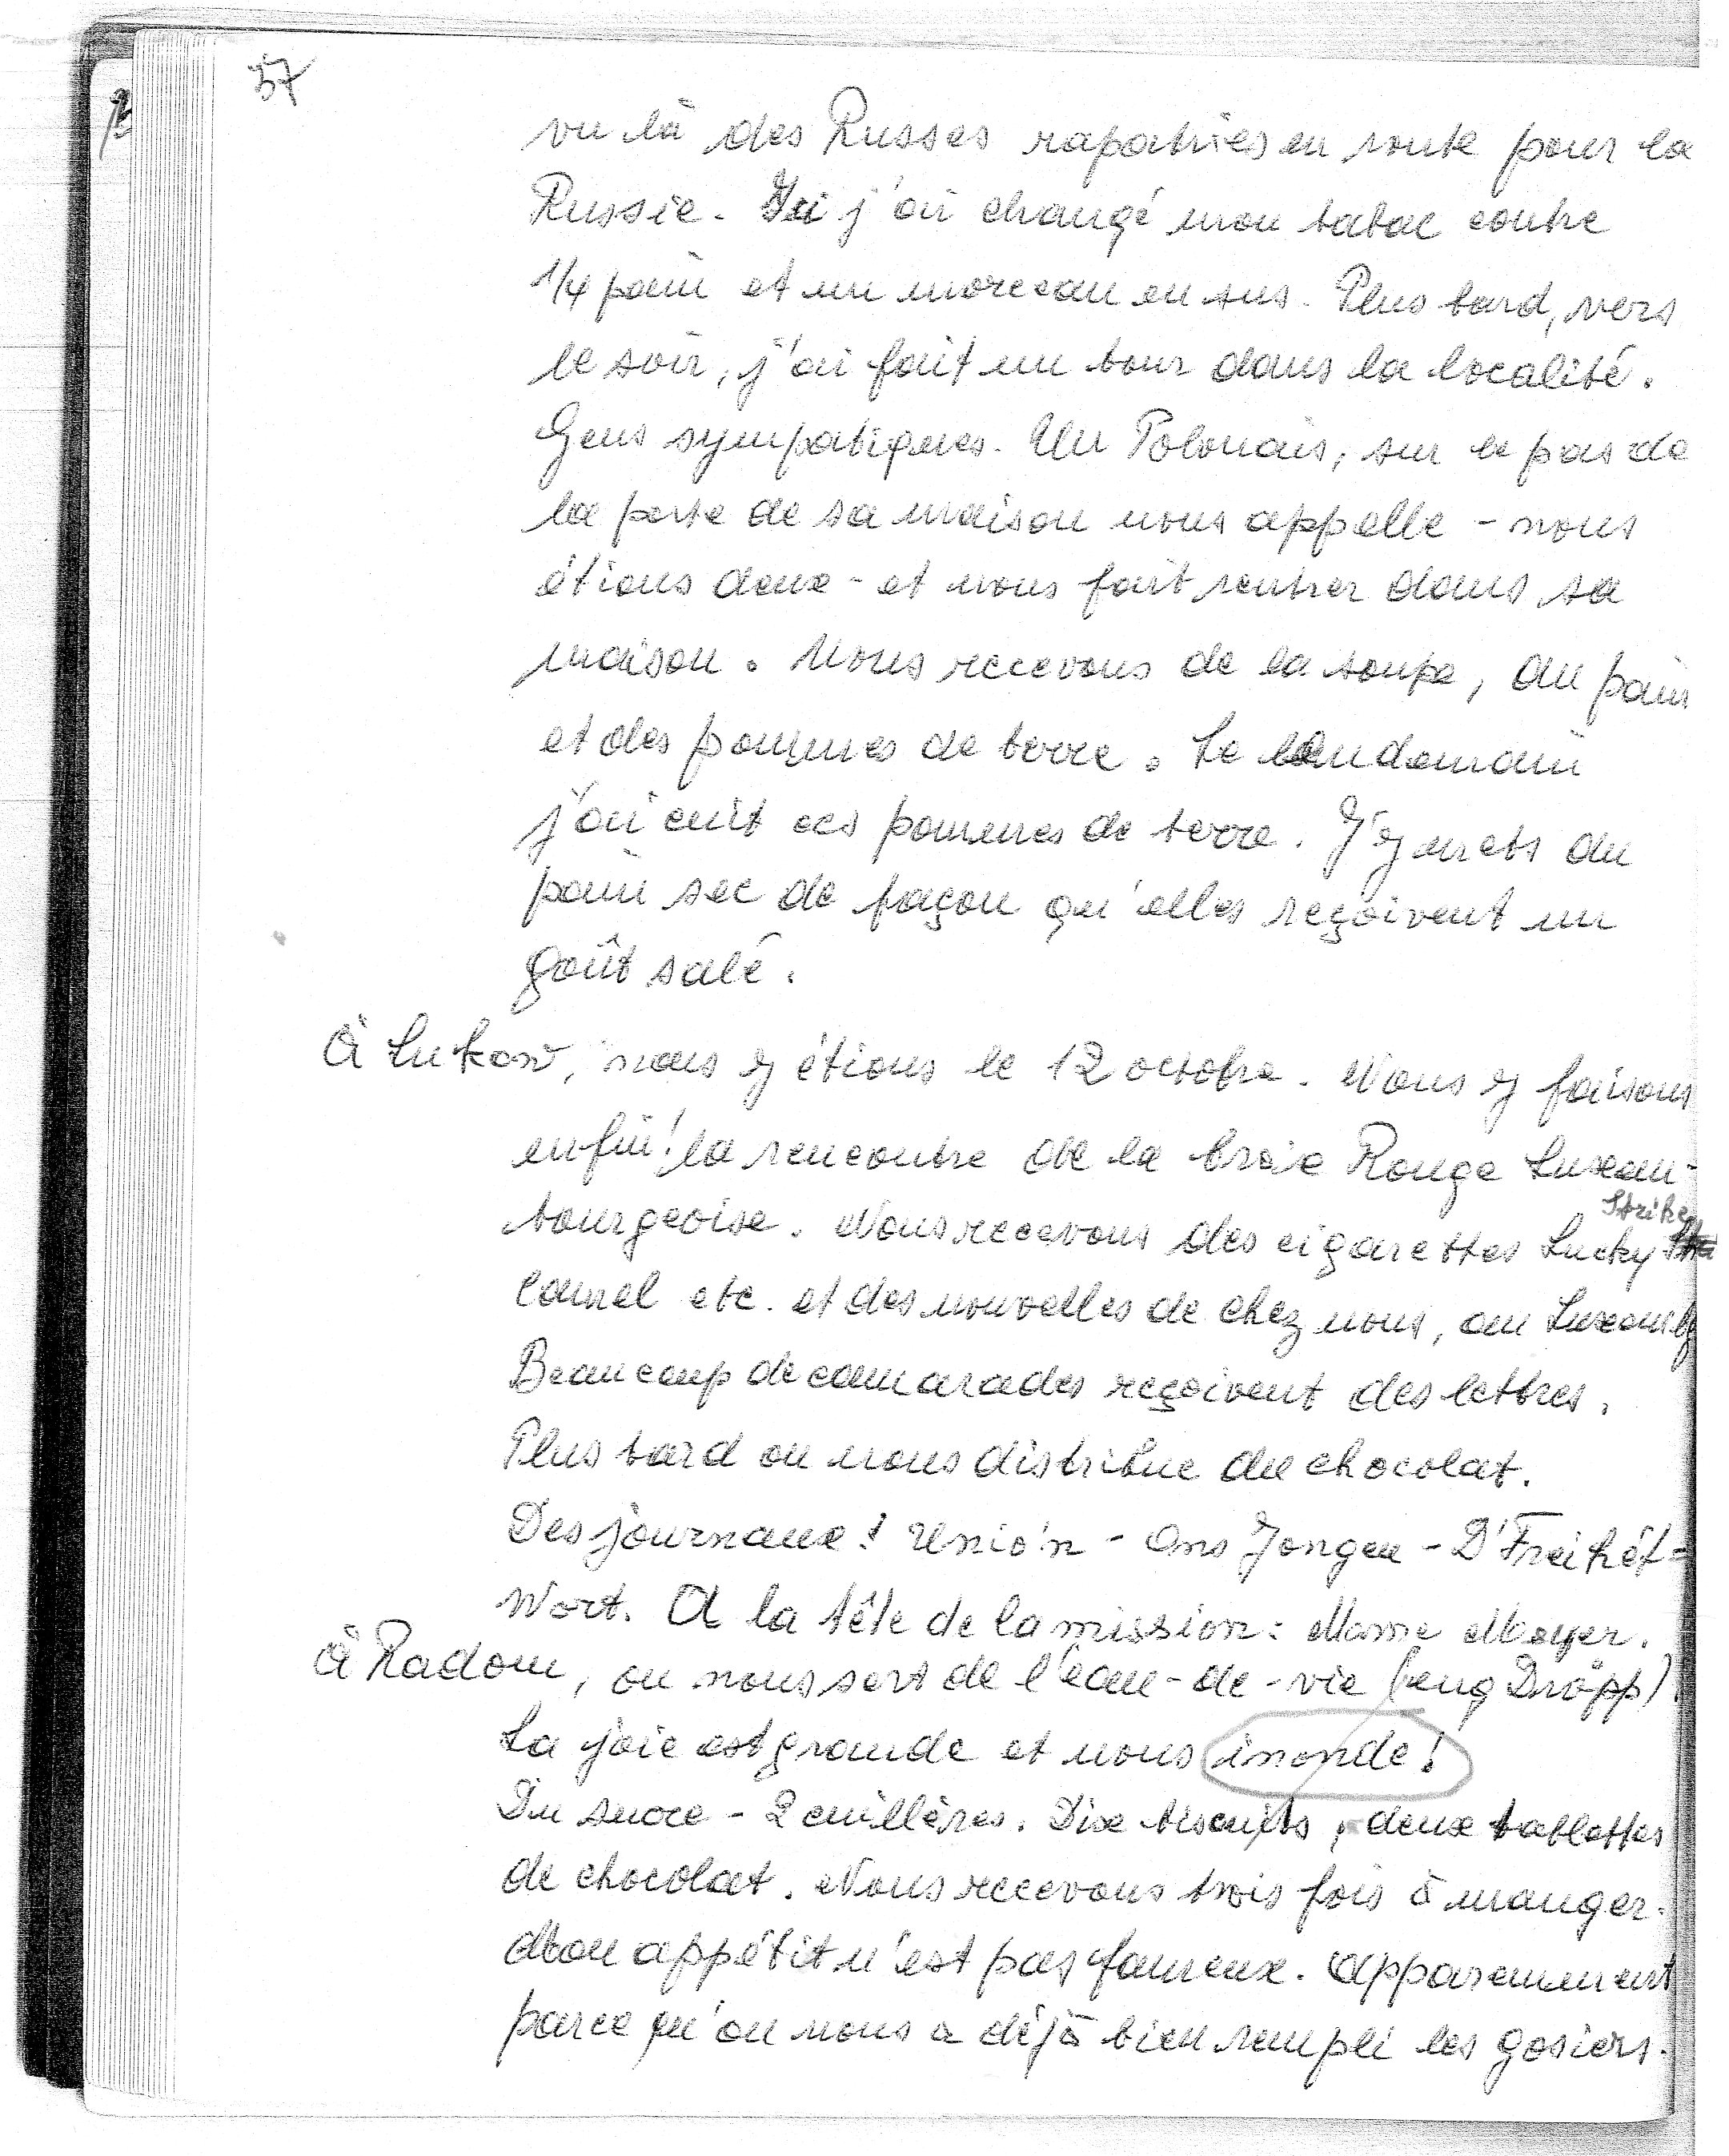 57
vu là des Russes rapatriés en route pour la
Russie. Ici j'ai changé mon tabac contre
1/4 pain et un morceau en sus. Plus tard, vers
le soir, j'ai fait un tour dans la localité.
Gens sympatiques. Un Polonais, sur le pas de
la porte de sa maison nous appelle - nous
étions deux - et nous fait rentrer dans sa
maison. Nous recevons de la soupe, du pain
et des pommes de terre. Le lendemain
j'ai cuit ces pommes de terre. J'y mets du
pain sec de façon qu'elles reçoivent un
goût salé.
À Lukow, nous y étions le 12 octobre. Nous y faisons
enfin! la rencontre de la Croix Rouge Luxem-
bourgeoise. Nous recevons des cigarettes Lucky Strike
Camel etc. et des nouvelles de chez nous, au Luxembg
Beaucoup de camarades reçoivent des lettres.
Plus tard on nous distribue du chocolat.
Des journaux! Unio'n - Ons Jongen - D'Freihét-
Wort. A la tête de la mission: Mame Mayer.
À Radom, on nous sert de l'eau-de-vie (eng Dröpp)
La joie est grande et nous inonde!
Du sucre - 2 cuillères. Dix biscuits, deux tablettes
de chocolat. Nous recevons trois fois à manger.
Mon appétit n'est pas fameux. Apparemment
parce qu'on nous a déjà bien rempli les gosiers.